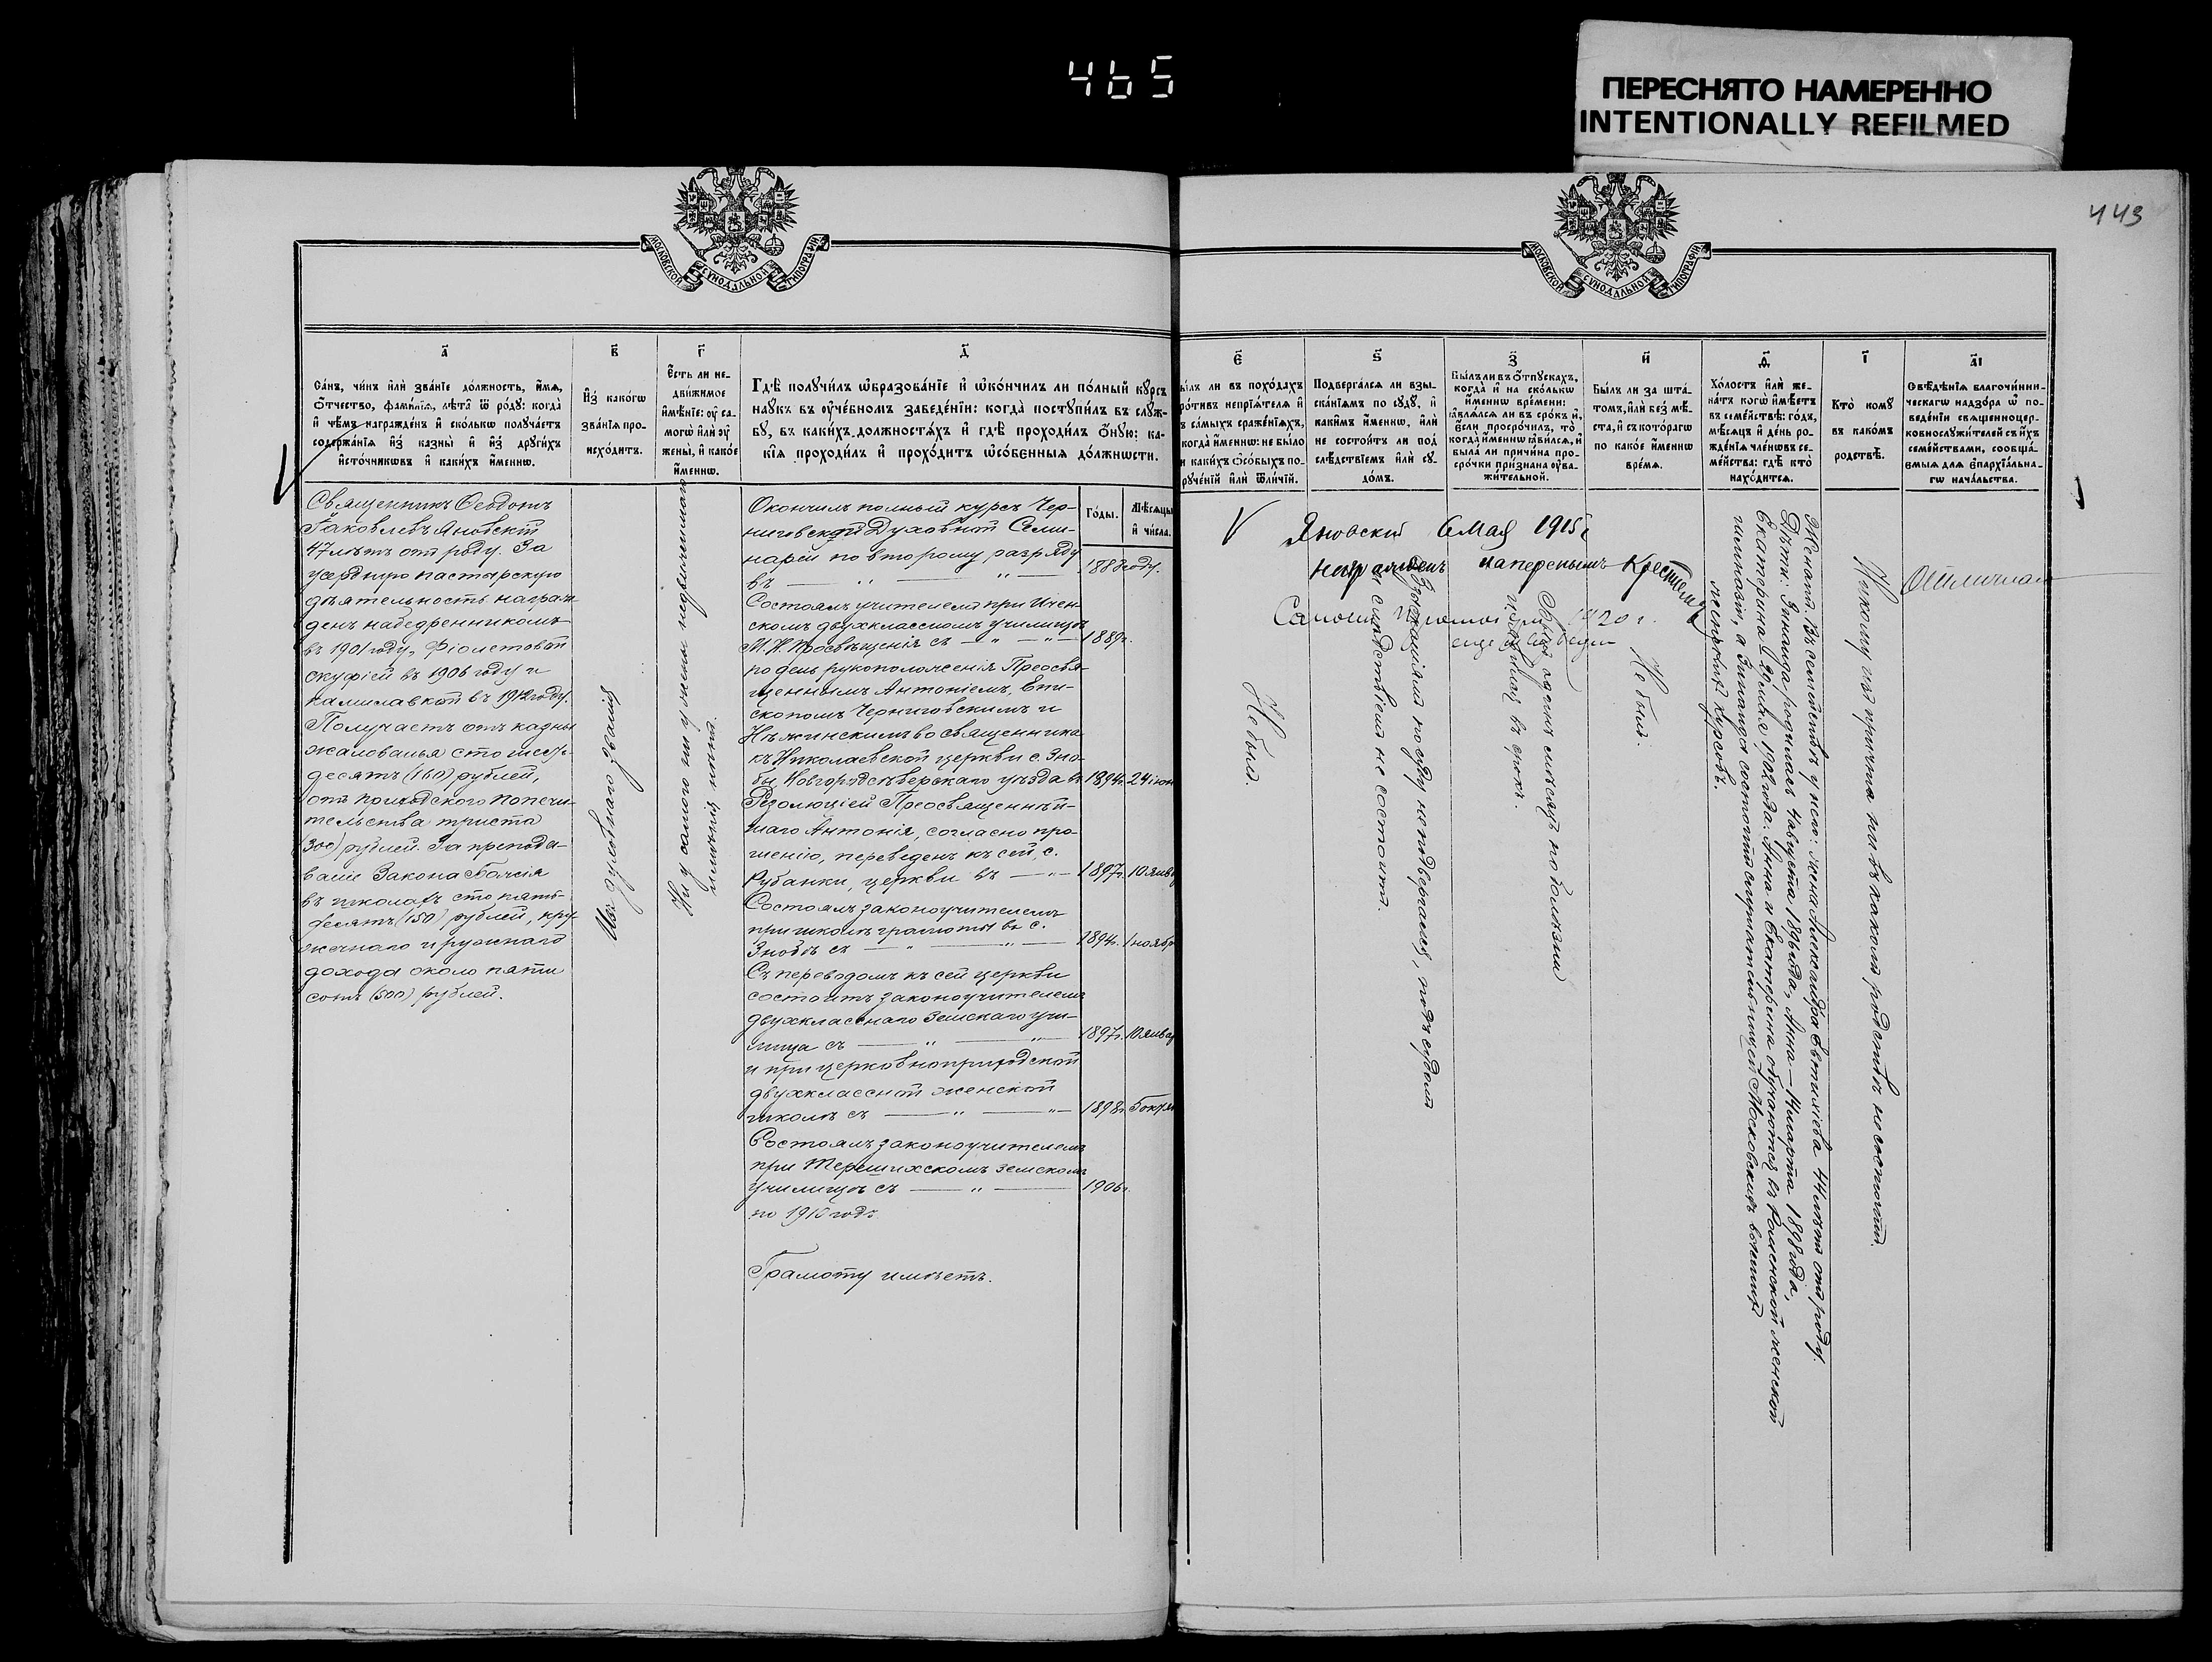 465
ПЕРЕСНЯТО НАМЕРЕННО
INTENTIONALLY REFILMED
443
МОСКОВСКОЙ СѴНОДАЛЬНОЙ ТИПОГРАФІИ
МОСКОВСКОЙ СѴНОДАЛЬНОЙ ТИПОГРАФІИ
а҃
Са́нъ, чи́нъ и҆лѝ зва́нїе до́лжность, и҆́мѧ,
ѻ҆́тчество, фами́лїѧ, лѣ́та ѿ ро́дꙋ: когда̀
и҆ чѣ́мъ награжде́нъ и҆ ско́лькѡ полꙋча́етъ
содержа́нїѧ и҆з̾ казны̀ и҆ и҆з̾ дрꙋги́хъ
и҆сто́чникѡвъ и҆ каки́хъ и҆́меннѡ.
в҃
И҆з̾ како́гѡ
зва́нїѧ про-
исхо́дитъ.
г҃
Є҆́сть ли не-
дви́жимое
и҆мѣ́нїе: ᲂу҆ са-
могѡ̀ и҆лѝ ᲂу҆
жены̀, и҆ како́е
и҆́меннѡ.
д҃
Гдѣ̀ полꙋчи́лъ ѡ҆бразова́нїе и҆ ѡ҆ко́нчилъ ли по́лный кꙋ́рсъ
наꙋ́къ въ ᲂу҆че́бномъ заведе́нїи: когда̀ постꙋпи́лъ въ слꙋ́ж-
бꙋ, въ каки́хъ до́лжностѧхъ и҆ гдѣ̀ проходи́лъ ѻ҆́нꙋю: ка-
кі́ѧ проходи́лъ и҆ прохо́дитъ ѡ҆со́бенныѧ до́лжнѡсти.
Го́ды.
Мѣ́сѧцы
и҆ чи́сла.
Священникъ Ѳеодотъ
Іаковлевъ Яновскій
47 лѣтъ отъ роду. За
усердную пастырскую
дѣятельность награж-
денъ набедренникомъ
въ 1901 году, Фіолетовой
скуфіей въ 1906 году и
камилавкой въ 1912 году.
Получаетъ отъ казны
жалованья сто шесть-
десятъ (160) рублей,
отъ приходского попечи-
тельства триста
(300) рублей. За препода-
ваніе Закона Божія
въ школахъ сто пять-
десятъ (150) рублей, кру-
жечнаго и ружнаго
дохода около пяти
сотъ (500) рублей.
Изъ духовнаго званія
Ни у самого ни у жены недвижимаго
имѣнія нѣтъ.
Окончилъ полный курсъ Чер-
ниговской Духовной Семи-
наріи по второму разряду
въ — „ — „ — 1888 году.
Состоялъ учителемъ при
скомъ двухклассномъ училищѣ
М. Н. Просвѣщенія съ — „ — „ — 1889 г.
по день рукоположенія Преосвя-
щеннымъ Антоніемъ, Епи-
скопомъ Черниговскимъ и
Нѣжинскимъ во священника
къ Николаевской церкви с. Зно-
бы Новгородсѣверскаго уѣзда въ 1894 г. 24 іюн
Резолюціей Преосвященнѣй-
шаго Антонія, согласно про-
шенію, переведенъ къ сей, с.
Рубанки, церкви въ — „ — 1897 г. 10 Янв
Состоялъ законоучителемъ
при школѣ грамоты въ с.
Знобѣ съ — „ — „ — 1894 г. 1 ноябр
Съ переводомъ къ сей церкви
состоитъ законоучителемъ
двухкласснаго Земскаго учи-
лища съ — „ — „ — 1897 г. 10 Январ
и при церковноприходской
двухклассной женской
школѣ съ — „ — „ — 1898 г.
Состоялъ законоучителемъ
при Терешихскомъ земскомъ
училищѣ съ — „ — 1906 г.
по 1910 годъ.
Грамоту имѣетъ.
є҃
ы́лъ ли въ похо́дахъ
ро́тивъ непрїѧ́телѧ и҆
ъ са́мыхъ сраже́нїѧхъ,
когда̀ и҆́меннѡ: не бы́ло
и каки́хъ ѻ҆со́быхъ по-
рꙋче́нїй и҆лѝ ѿли́чїй.
ѕ҃
Подверга́лсѧ ли взы-
ска́нїѧмъ по сꙋдꙋ̀, и҆
каки́мъ и҆́меннѡ, и҆лѝ
не состои́тъ ли под̾
слѣ́дствїемъ и҆лѝ сꙋ-
до́мъ.
з҃
Бы́лъ ли въ ѻ҆́тпꙋскахъ,
когда̀ и҆ на ско́лькѡ
и҆́меннѡ вре́мени:
ꙗ҆влѧ́лсѧ ли въ сро́къ и҆,
є҆́сли просро́чилъ, то̀
когда̀ и҆́меннѡ ꙗ҆ви́лсѧ, и҆
была̀ ли причи́на про-
сро́чки при́знана ᲂу҆ва-
жи́тельной.
и҃
Бы́лъ ли за шта́-
томъ, и҆лѝ без̾ мѣ́-
ста, и҆ съ кото́рагѡ
по како́е и҆́меннѡ
вре́мѧ.
ѳ҃
Хо́лостъ и҆лѝ же-
на́тъ когѡ̀ и҆мѣ́етъ
въ семе́йствѣ: го́дъ,
мѣ́сѧцъ и҆ де́нь ро-
жде́нїѧ чле́нѡвъ се-
ме́йства: гдѣ̀ кто̀
нахо́дитсѧ.
і҃
Кто̀ комꙋ̀
въ како́мъ
родствѣ̀.
а҃і
Свѣ́дѣнїѧ благочи́нни-
ческагѡ надзо́ра ѡ҆ по-
веде́нїи свѧщенноцер-
ковнослꙋжи́телей съ и҆́хъ
семе́йствами, сообща́-
емыѧ длѧ є҆парха́льна-
гѡ нача́льства.
V Яновскій 6 Мая 1915 г
награжденъ наперснымъ Крестомъ
1920 г.
Не былъ.
Взысканіямъ по суду не подвергался, подъ судомъ
и слѣдствіемъ не состоитъ.
Былъ одинъ мѣсяцъ по болѣзни
и явился въ срокъ.
Не былъ.
Женатъ. Въ семействѣ у него: жена Александра Евтихіева 44 лѣтъ отъ роду.
Дѣти: Зинаида, родилась 4 августа 1896 года, Анна — 14 марта 1898 года,
Екатерина 1902 года. Анна и Екатерина обучаются въ Роменской женской
гимназіи, а Зинаида состоитъ слушательницей Московскихъ высшихъ
женскихъ курсовъ.
Никому изъ причта ни въ какомъ родствѣ не состоитъ.
Отличнаго